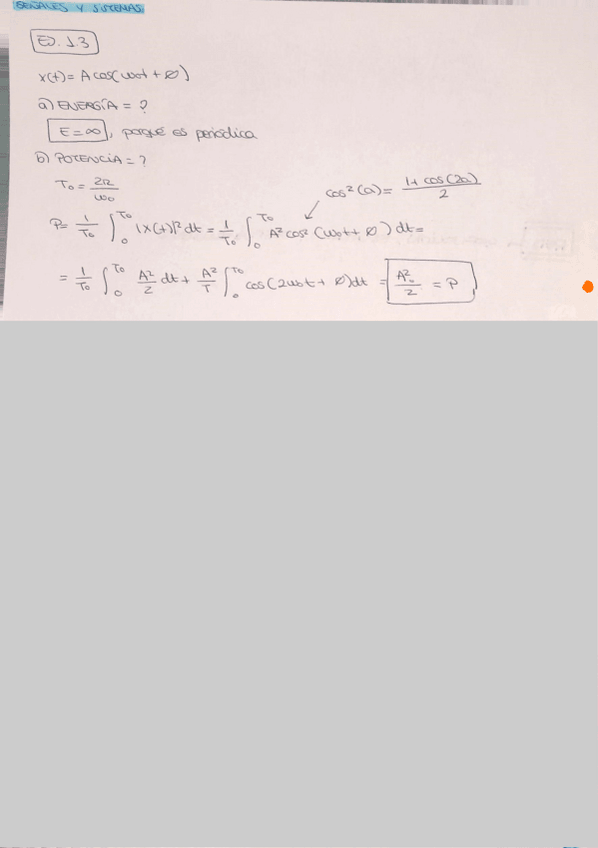 SEÑALES Y SISTEMAS
EJ. 1.3
x(t) = A cos(ω0t + ∅)
a) ENERGÍA = ?
E = ∞, porque es periódica
b) POTENCIA = ?
T0 = 2π/ω0
cos²(a) = (1 + cos(2a))/2
P = 1/T0 ∫₀^T0 |x(t)|² dt = 1/T0 ∫₀^T0 A² cos² (ω0t + ∅) dt =
= 1/T0 ∫₀^T0 A²/2 dt + A²/T ∫₀^T0 cos(2ω0t + ∅) dt = A0²/2 = P